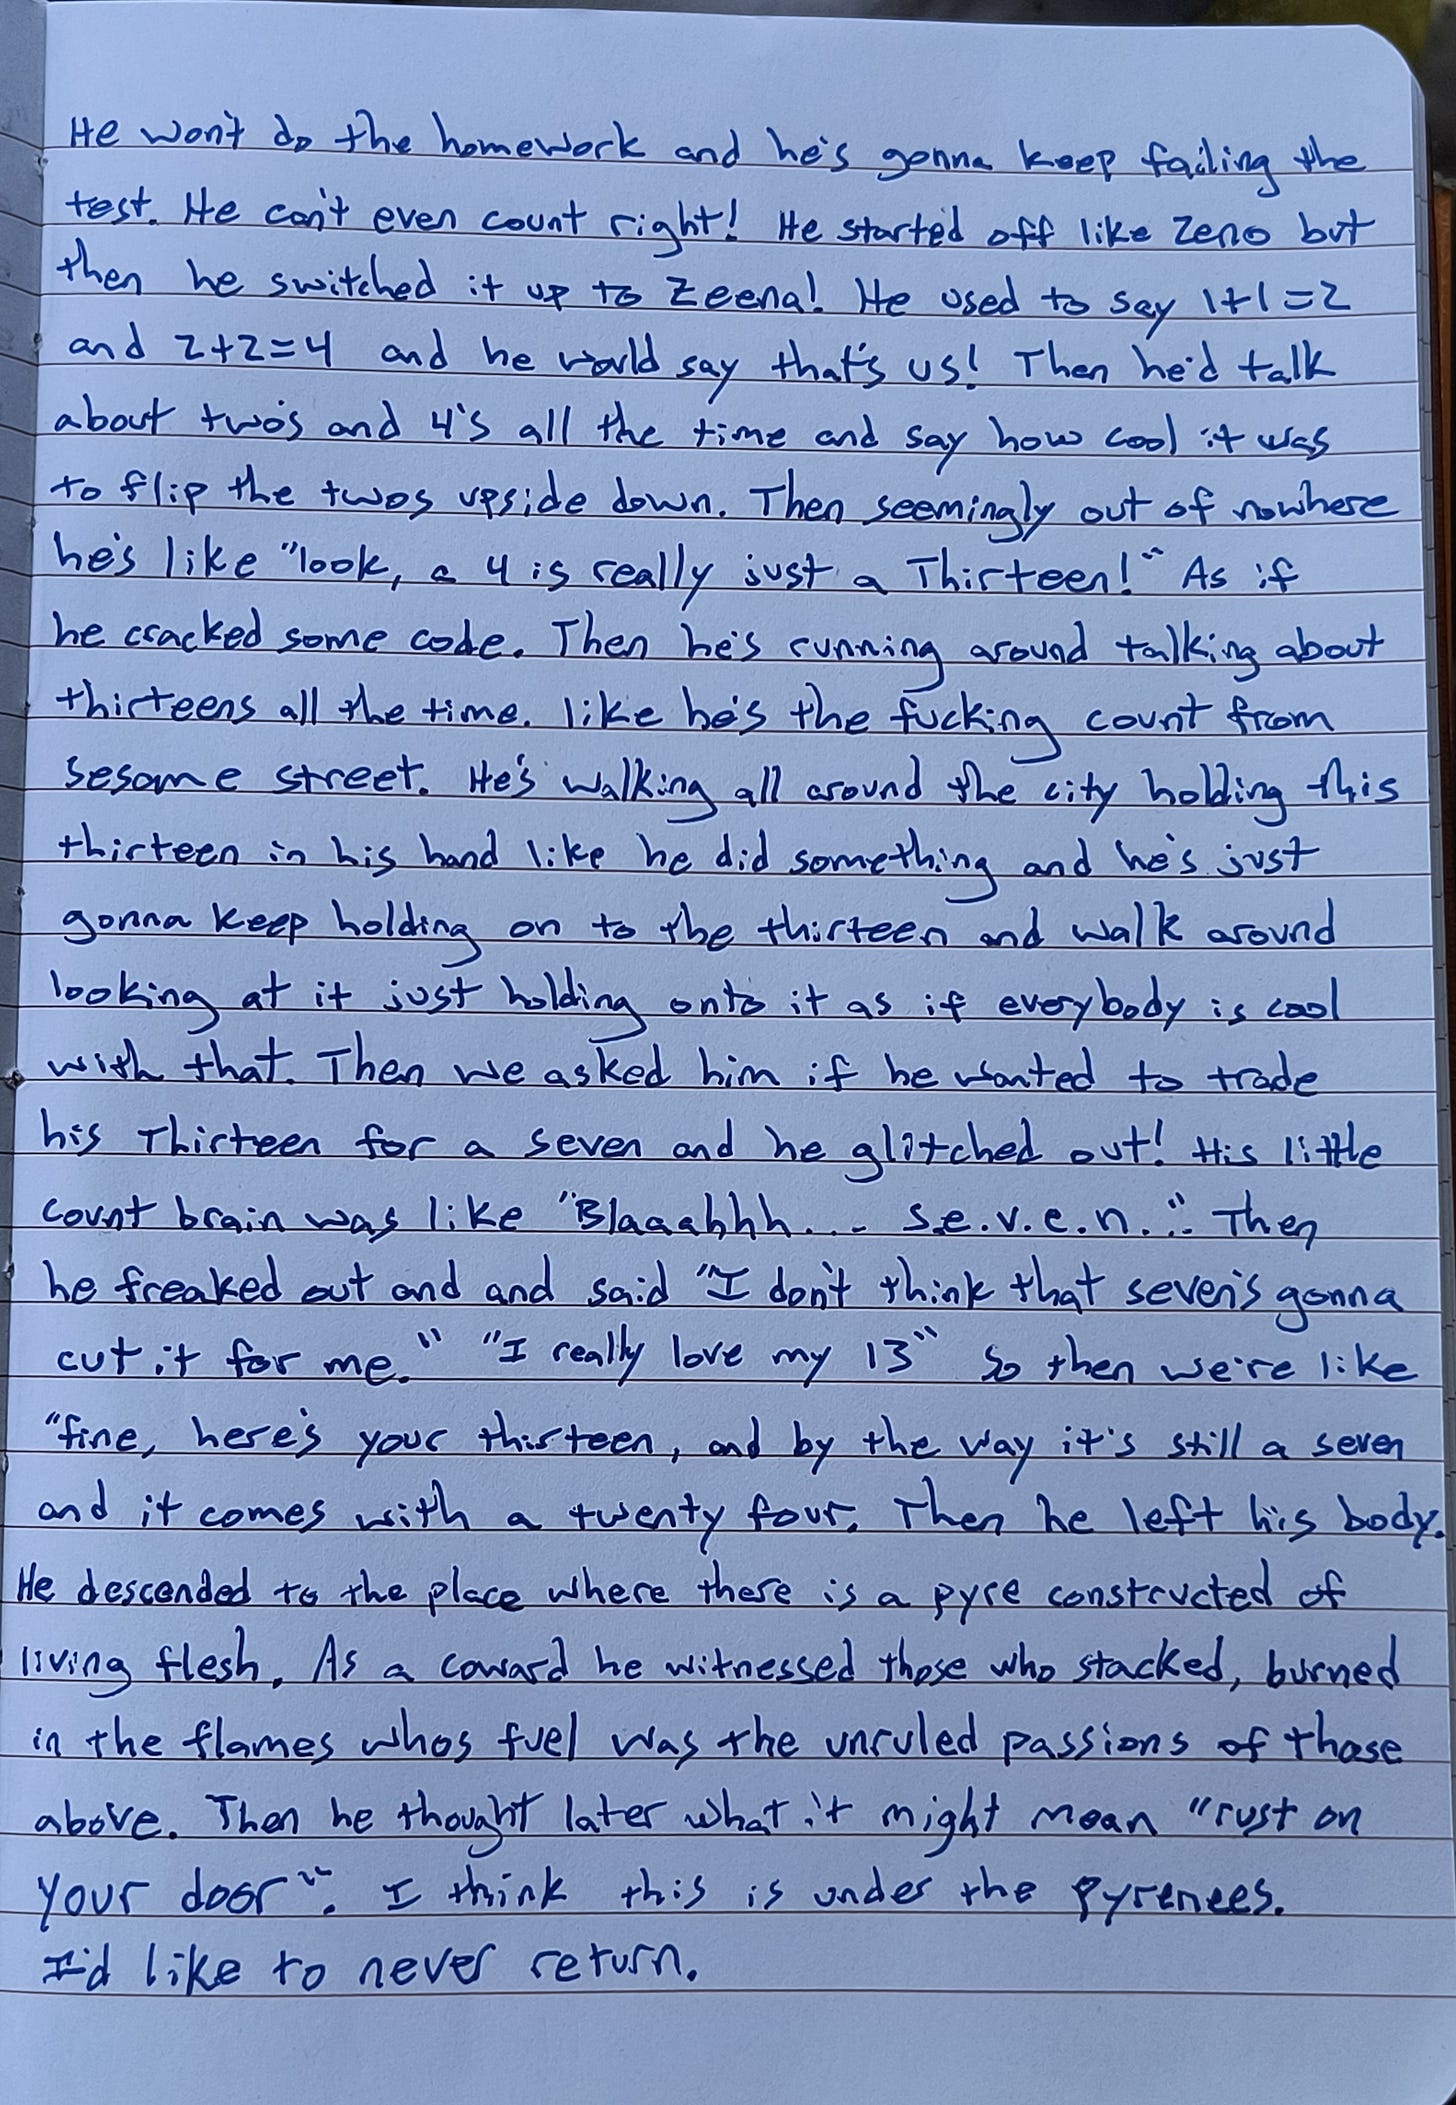 He won't do the homework and he's gonna keep failing the
test. He can't even count right! He started off like Zeno but
then he switched it up to Zeena! He used to say 1+1=2
and 2+2=4 and he would say that's us! Then he'd talk
about two's and 4's all the time and say how cool it was
to flip the twos upside down. Then seemingly out of nowhere
he's like "look, a 4 is really just a Thirteen!" As if
he cracked some code. Then he's running around talking about
thirteens all the time. like he's the fucking count from
Sesame street. He's walking all around the city holding this
thirteen in his hand like he did something and he's just
gonna keep holding on to the thirteen and walk around
looking at it just holding onto it as if everybody is cool
with that. Then we asked him if he wanted to trade
his Thirteen for a seven and he glitched out! His little
count brain was like "Blaaahhh... s.e.v.e.n.". Then
he freaked out and and said "I don't think that seven's gonna
cut it for me." "I really love my 13" So then we're like
"fine, here's your thirteen, and by the way it's still a seven
and it comes with a twenty four. Then he left his body.
He descended to the place where there is a pyre constructed of
living flesh. As a coward he witnessed those who stacked, burned
in the flames whos fuel was the unruled passions of those
above. Then he thought later what it might mean "rust on
your door". I think this is under the Pyrenees.
I'd like to never return.